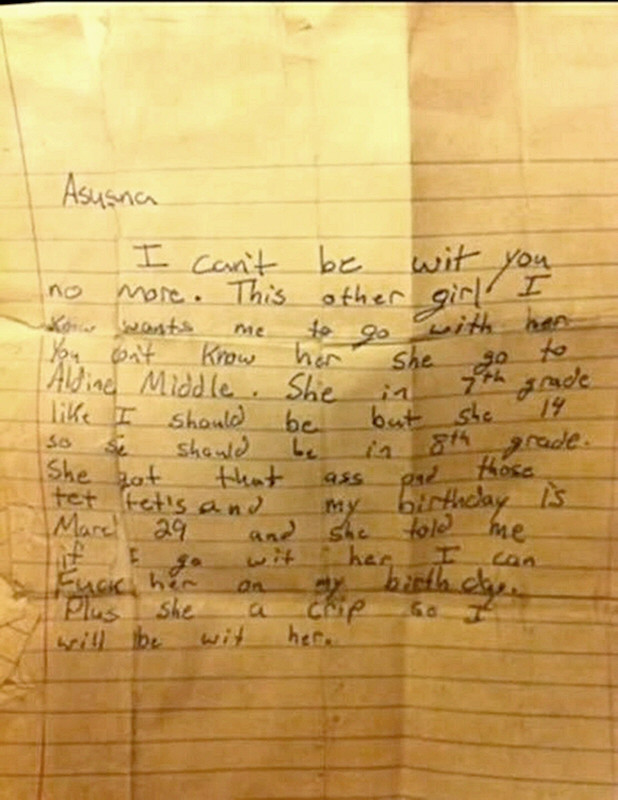 Asusna
I can't be wit you
no more. This other girl I
know wants me to go with her
You don't know her she go to
Aldine Middle. She in 7th grade
like I should be but she 14
so se should be in 8th grade.
my birthday is
Marcl 29 and she told me
if I go wit her I can
Plus she a crip so I
will be wit her.